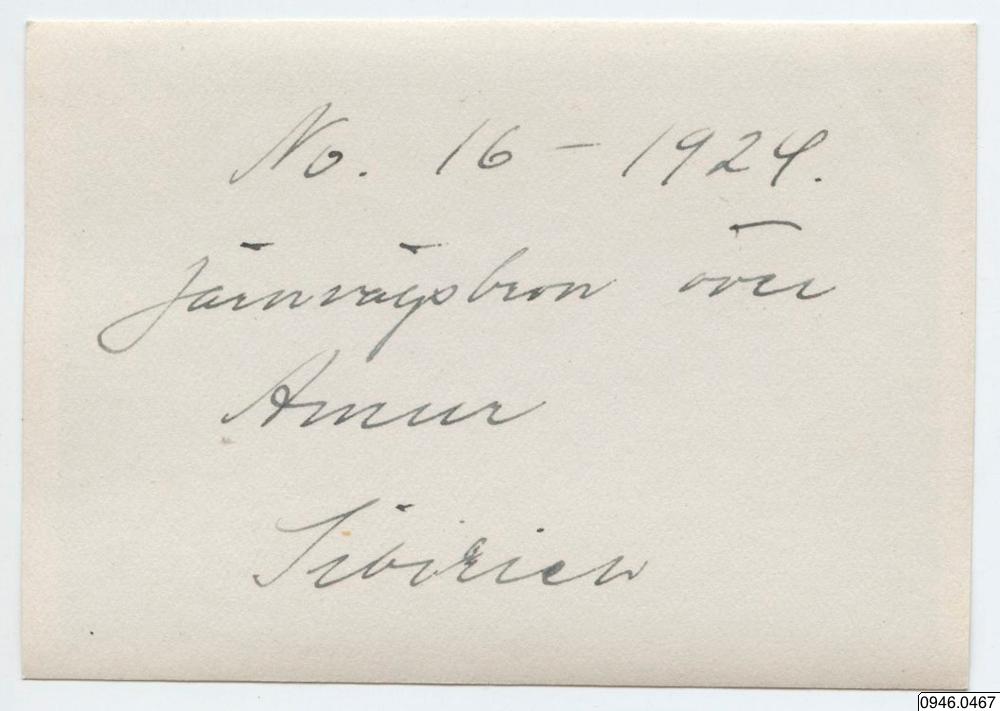 No. 16 – 1924.
Järnvägsbron över
Amur
Sibirien
0946.0467